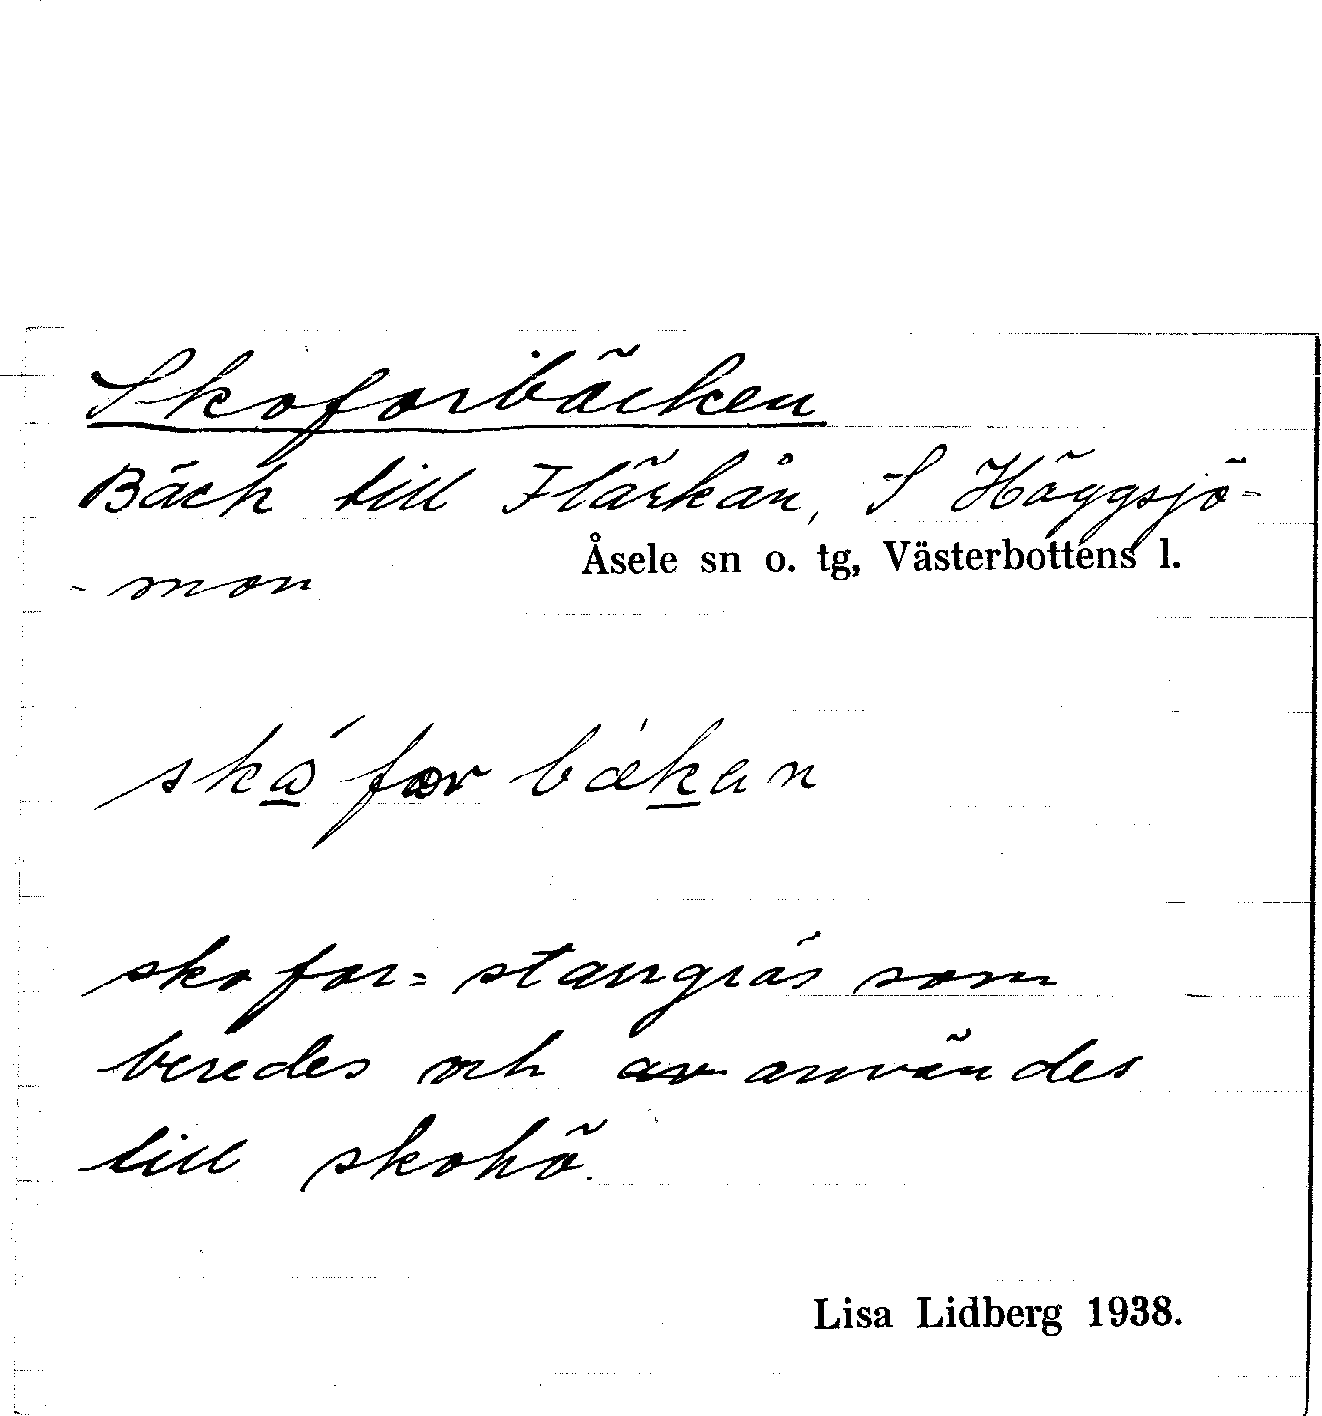 Skoforbäcken
Bäck till Flärkån, S Häggsjö-
Åsele sn o. tg, Västerbottens l.
- mon
skå´for bækan
skofor = starrgräs som
beredes och av användes
till skohö.
Lisa Lidberg 1938.